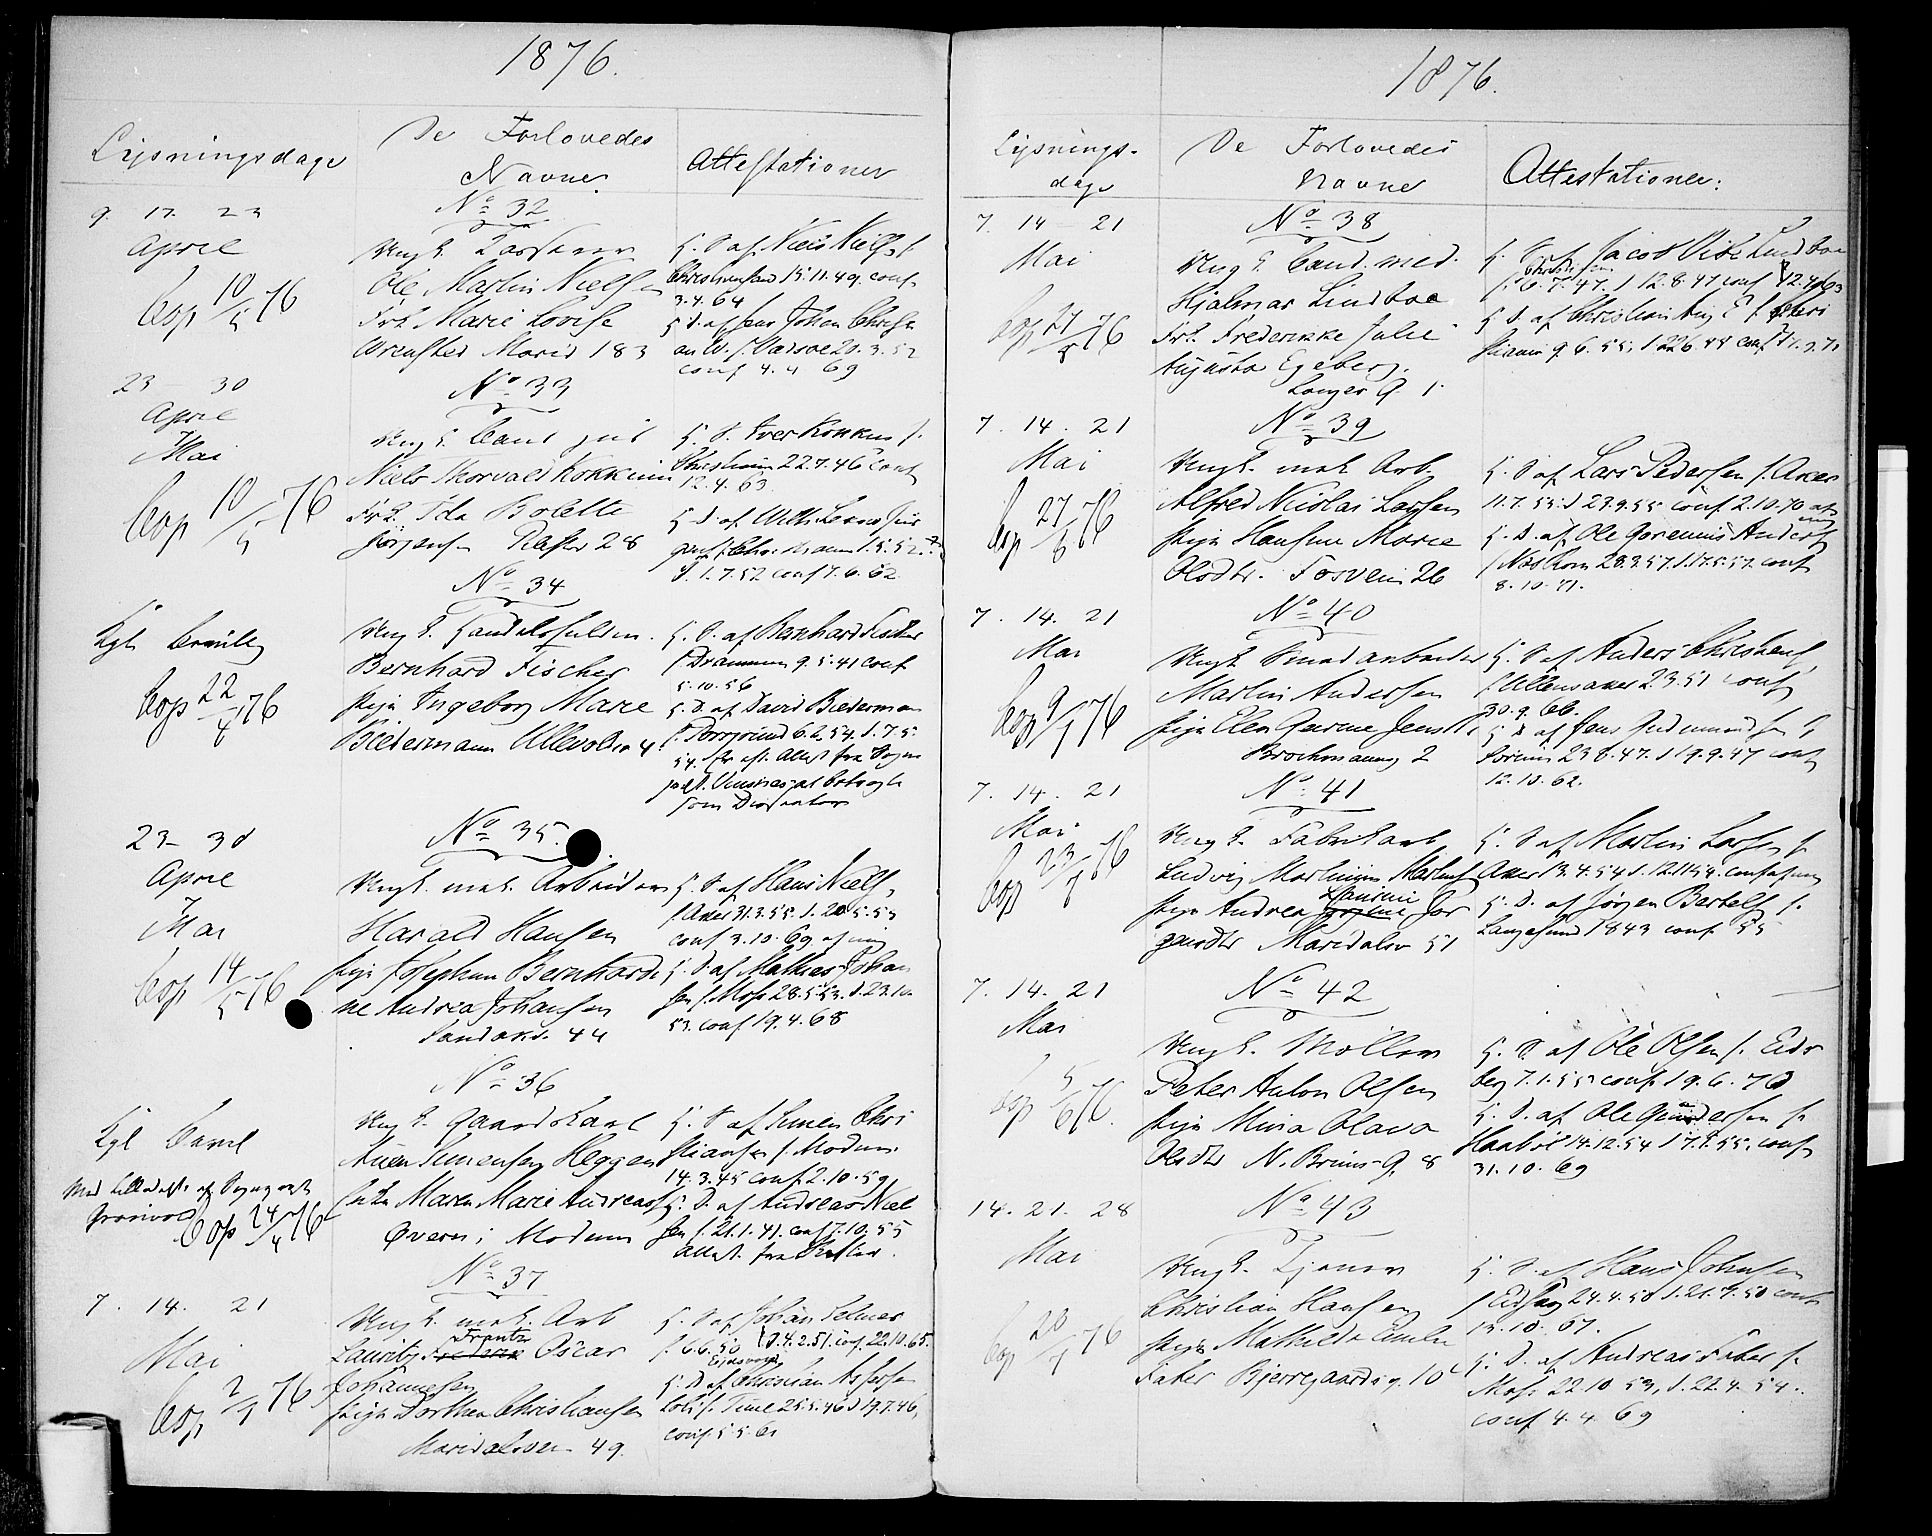 1876.
Lysningsdage
De Forlovedes
Navne.
Attestationer
9. 17. 23
April
Cop 10/5 76
No 32.
Ungk.
Ole Martin Nielsen
Frk. Marie Lovise
Wrensted Marid 183
G. S. af Niels Niels f.
Christiansand 15.11.49. conf
3.4.64
G D. af Jens Johan Christi
an W. f. Vadsøe 20.3.52
conf 4.4 69
23 - 30
April
Mai
Cop 10/5 76
No 33
Ungk. Cand jur
Niels Thorvald Kokkim
Frk. Ida Bolette
Jørgensen 28
G. S. Iver Kokkim f.
22.7.46 conf
12.4.63
G D. af
1.5.52
d. 1.7.52 conf 7.6.62
Kgl
Cop 22/4 76
No 34
Ungk. Handelsfuldm.
Bernhard Fischer
Pige Ingeborg Marie
Biedermann Ullevolsv 4
G. S. af Bernhard Fischer
f. Drammen 9.5.41 conf
5.10.56
G. D. af David Biederman
f. Porsgrund 6.6.54. d. 7.5.
54. Attest fra Sogne
som Dissenter
23 - 30
April
Mai
Cop 14/5 76
No 35.
Ungk. mat. Arbeider
Harald Hansen
Pige Josephine Bernhardi
ne Andrea Johansen
Sandakv. 44
G. S. af Hans Niels
f Aker 31.3.55. d. 20.5.55
conf 3.10.69 af mig
G. D. af Mathias Johan
sen f. Moss 28.5.53. d. 23.10.
53. conf 19.4.68
No 36
Kgl
Med af Sogneprest
Cop 24/4 76
Ungk. Gaardskarl
Simensen Heggen
Enke Maren Marie Andreasd
Øveren i Modum
G. S. af Simen Chri
stiansen f. Modum
14.3.45 conf. 2.10.59
G. D. af Andreas Niel
sen f. 21.1.41. conf 7.10.55
Attest. fra
7. 14. 21
Mai
Cop 2/7 76
No 37
Ungk. mat. Arb
Frantz
Lauritz Oscar
Johannesen
Pige Dorthea Christiansen
Maridalsvei 49.
G. S. af Johan Selmer
f. 6.6.50 d. 4.2.51. conf. 22.10.65.
Eidsvold
G. D af Christian
f. Time 25.5.46 d 19.7.46,
conf. 5.5.61
1876.
Lysnings-
dage
De Forlovedes
Navne
Attestationer:
7. 14 - 21
Mai
Cop 27/5 76
No 38
Ungk. Cand. med.
Hjalmar Lindboe
Frk. Frederikke Julie
Augusta Egeberg.
Langes G. 1
G. S. af Jacob Vibe Lindboe
f. 6.7.47. d 12.8.47 conf 12.4.63
G D. af Christian Aug E f. Chri
stiania 9.6.55, d 22.6.55 conf 17.9.71
7. 14. 21
Mai
Cop 27/6 76
No 39
Ungk. mat Arb.
Alfred Nicolai Larsen
Pige Hansine Marie
Olsdtr. Fosvein 26
G. S af Lars Pedersen f. Aker
11.7.55. d 23.9.55 conf 2.10.70 af
mig
G. D. af Ole Gorenius Anders
f. Næs Rom 28.3.57. d. 17.5.57. conf
8.10.71.
7. 14. 21
Mai
Cop 9/7 76
No 40
Ungk Smedarbeider
Martin Andersen
Pige Elen Gurine Jensd
Brochmanng 2
G. S af Anders Christens
f. Ullensaker 2.3.51 conf
30.9.66.
G D af Jens Gudmunds f
Sørum 23 8.47. d 19.9.47 conf
12.10.62.
7. 14. 21
Mai
Cop 23/7 76
No 41
Ungk. Fabrikarb
Ludvig Martinius Martins
Laurine
Pige Andrea Jør
gensdtr Maridalsv 51
G. S af Martin Larsen f.
Aker 13.4.54 d. 12.11.54. conf af mig
G. D. af Jørgen Bertels f.
Langesund 1843 conf 55
7. 14. 21
Mai
Cop 5/6 76.
No 42
Ungk. Møller
Peter Anton Olsen
Pige Mina Olava
Olsdtr N. Bruns G. 8
G. S af Ole Olsen f. Eids
berg 7.1.55 conf. 19.6.70
G. D. af Ole Gundersen f
Haabøl 14.12.54 d 7.1.55. conf
31.10.69
14. 21. 28
Mai
Cop 20/7 76
No 43
Ungk. Tjener
Christian Hansen
Pige Mathilde Emilie
Faber Bjerregaardsg. 10
G. S. af Hans Johnsen
f Eidskog 24.4.50 d. 21.7.50 conf
15.10.67.
G. D. af Andreas Faber f.
Moss 22.10 53, d. 22.4.54.
conf 4.4.69